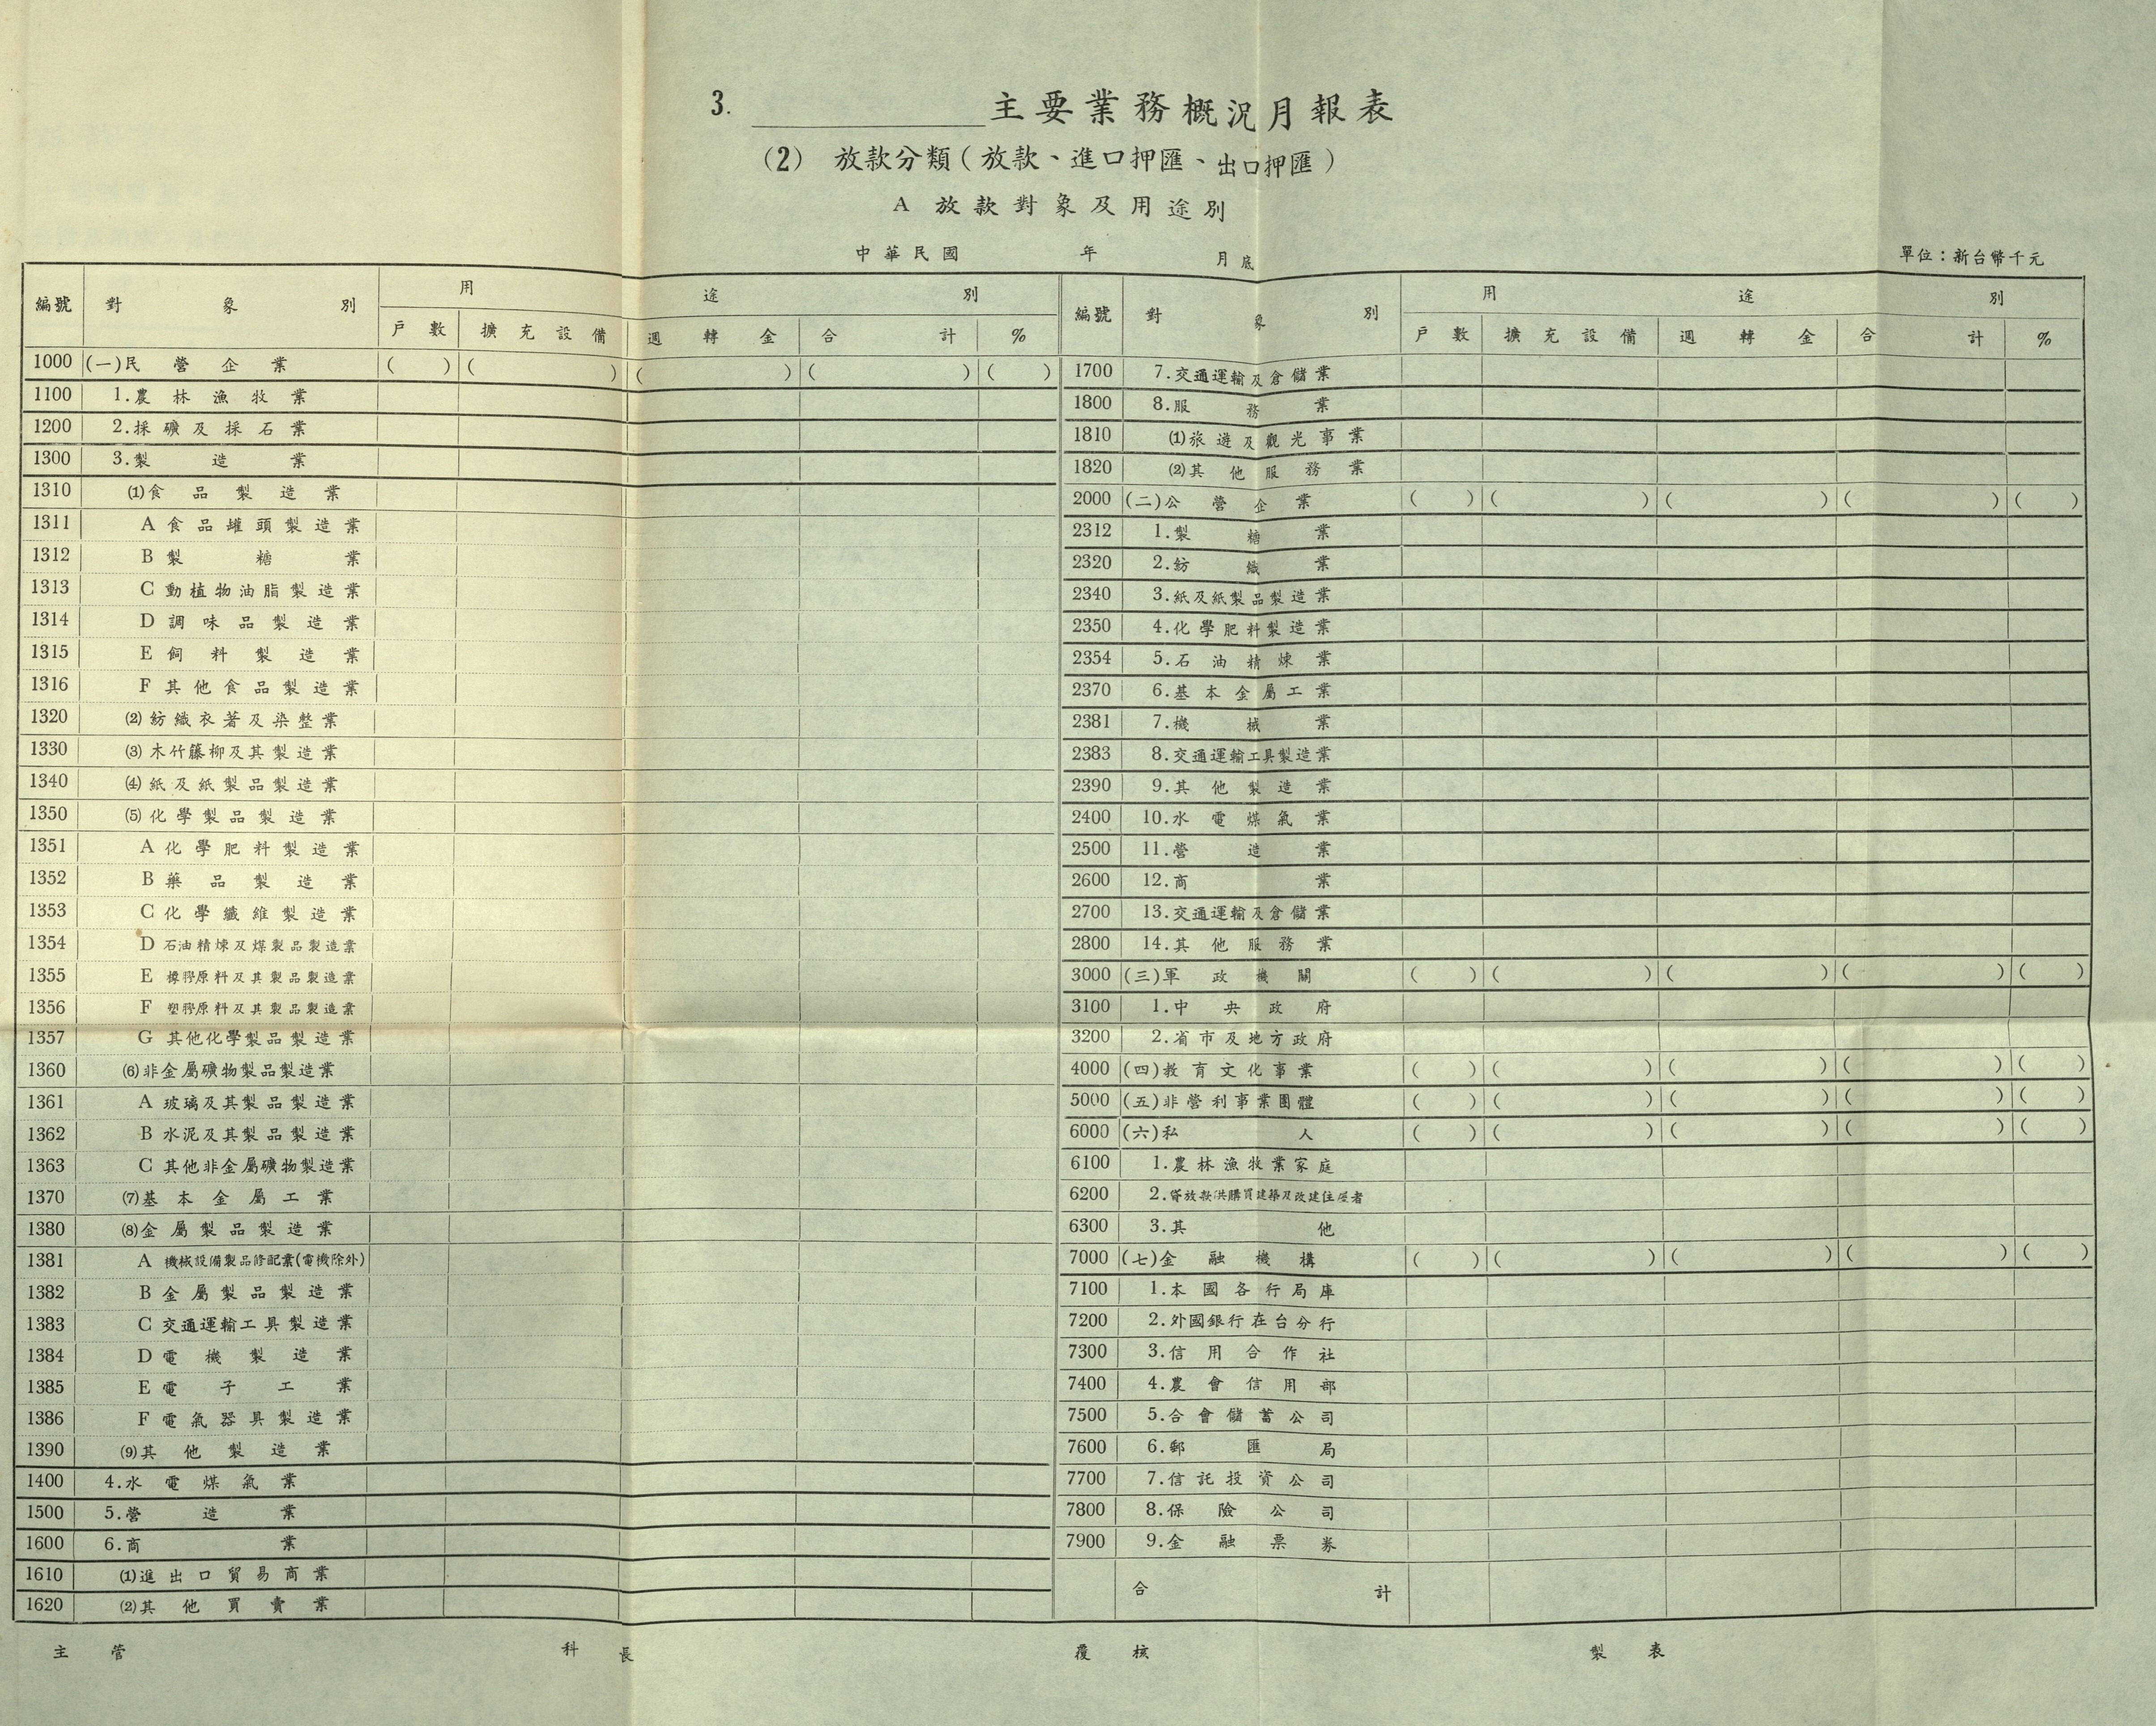 3. 主要業務概況月報表
(2) 放款分類(放款、進口押匯、出口押匯)
A 放款對象及用途別
中華民國 年 月底
單位：新台幣千元
編號 對象別 用途別
戶數 擴充設備 週轉金 合計 %
1000 (一)民營企業 ( ) ( ) ( ) ( ) ( )
1100 1.農林漁牧業
1200 2.採礦及採石業
1300 3.製造業
1310 (1)食品製造業
1311 A 食品罐頭製造業
1312 B 製糖業
1313 C 動植物油脂製造業
1314 D 調味品製造業
1315 E 飼料製造業
1316 F 其他食品製造業
1320 (2)紡織衣著及染整業
1330 (3)木竹藤柳及其製造業
1340 (4)紙及紙製品製造業
1350 (5)化學製品製造業
1351 A 化學肥料製造業
1352 B 藥品製造業
1353 C 化學纖維製造業
1354 D 石油精煉及煤製品製造業
1355 E 橡膠原料及其製品製造業
1356 F 塑膠原料及其製品製造業
1357 G 其他化學製品製造業
1360 (6)非金屬礦物製品製造業
1361 A 玻璃及其製品製造業
1362 B 水泥及其製品製造業
1363 C 其他非金屬礦物製造業
1370 (7)基本金屬工業
1380 (8)金屬製品製造業
1381 A 機械設備製品修配業(電機除外)
1382 B 金屬製品製造業
1383 C 交通運輸工具製造業
1384 D 電機製造業
1385 E 電子工業
1386 F 電氣器具製造業
1390 (9)其他製造業
1400 4.水電煤氣業
1500 5.營造業
1600 6.商業
1610 (1)進出口貿易商業
1620 (2)其他買賣業
編號 對象別 用途別
戶數 擴充設備 週轉金 合計 %
1700 7.交通運輸及倉儲業
1800 8.服務業
1810 (1)旅遊及觀光事業
1820 (2)其他服務業
2000 (二)公營企業 ( ) ( ) ( ) ( ) ( )
2312 1.製糖業
2320 2.紡織業
2340 3.紙及紙製品製造業
2350 4.化學肥料製造業
2354 5.石油精煉業
2370 6.基本金屬工業
2381 7.機械業
2383 8.交通運輸工具製造業
2390 9.其他製造業
2400 10.水電煤氣業
2500 11.營造業
2600 12.商業
2700 13.交通運輸及倉儲業
2800 14.其他服務業
3000 (三)軍政機關 ( ) ( ) ( ) ( ) ( )
3100 1.中央政府
3200 2.省市及地方政府
4000 (四)教育文化事業 ( ) ( ) ( ) ( ) ( )
5000 (五)非營利事業團體 ( ) ( ) ( ) ( ) ( )
6000 (六)私人 ( ) ( ) ( ) ( ) ( )
6100 1.農林漁牧業家庭
6200 2.貸放款供購買建築及改建住屋者
6300 3.其他
7000 (七)金融機構 ( ) ( ) ( ) ( ) ( )
7100 1.本國各行局庫
7200 2.外國銀行在台分行
7300 3.信用合作社
7400 4.農會信用部
7500 5.合會儲蓄公司
7600 6.郵匯局
7700 7.信託投資公司
7800 8.保險公司
7900 9.金融票券
合計
主管 科長 覆核 製表